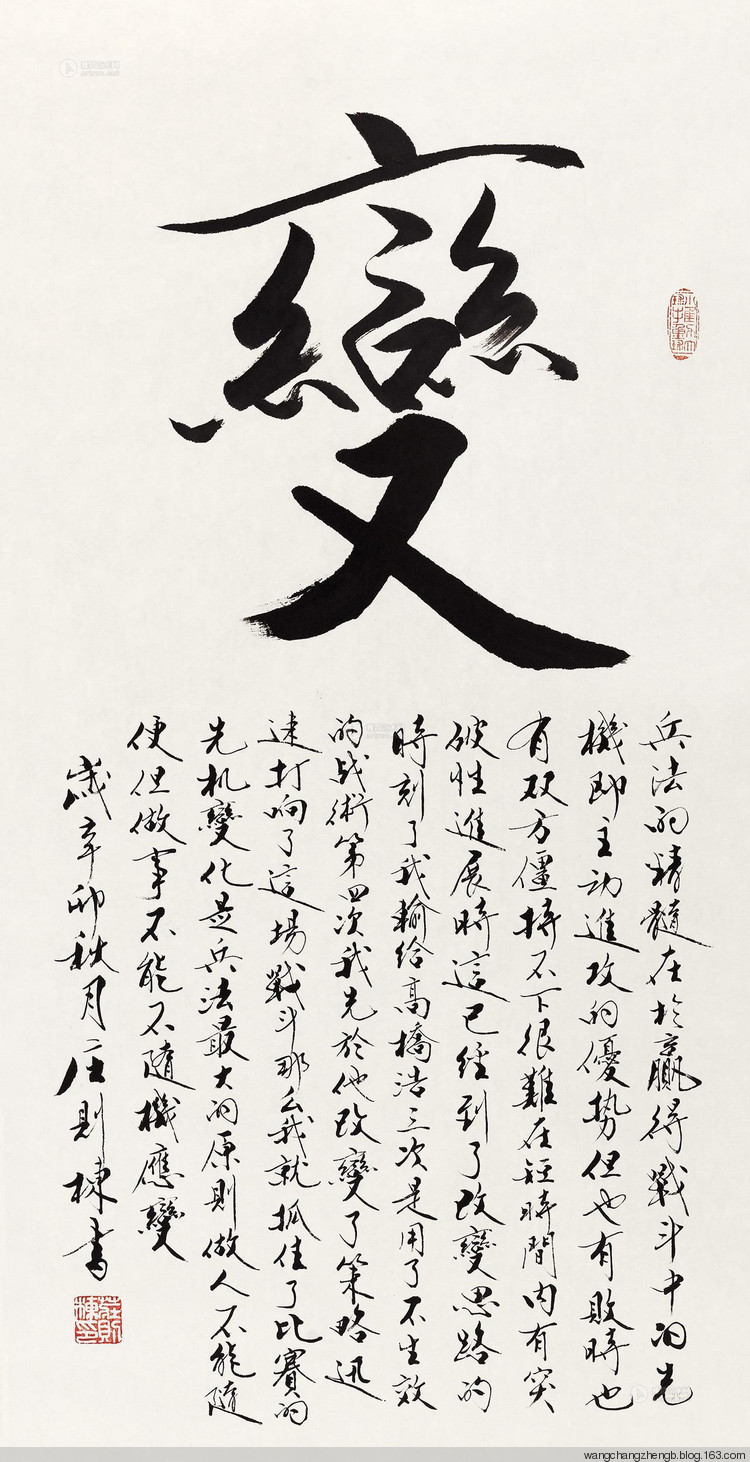 變
兵法的精髓在於贏得戰斗中的先
機即主动進攻的優势但也有敗時也
有双方僵持不下很難在短時間内有突
破性進展時這已經到了改變思路的
時刻了我輸给高橋浩三次是用了不生效
的战術第四次我先於他改變了策略迅
速打响了這場戰斗那么我就抓住了比賽的
先机變化是兵法最大的原則做人不能随
便但做事不能不隨機應變
歲辛卯秋月庄則棟書
莊則棟印
wangchangzhengb.blog.163.com